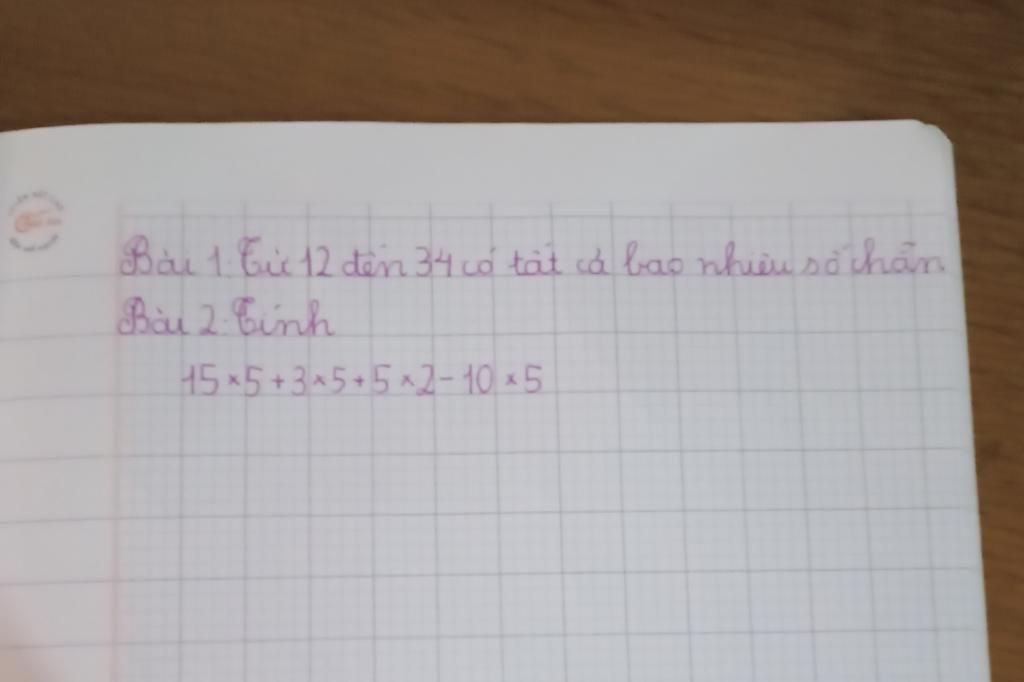 Bài 1. Từ 12 đến 34 có tất cả bao nhiêu số chẵn
Bài 2. Tính
15 × 5 + 3 × 5 + 5 × 2 - 10 × 5